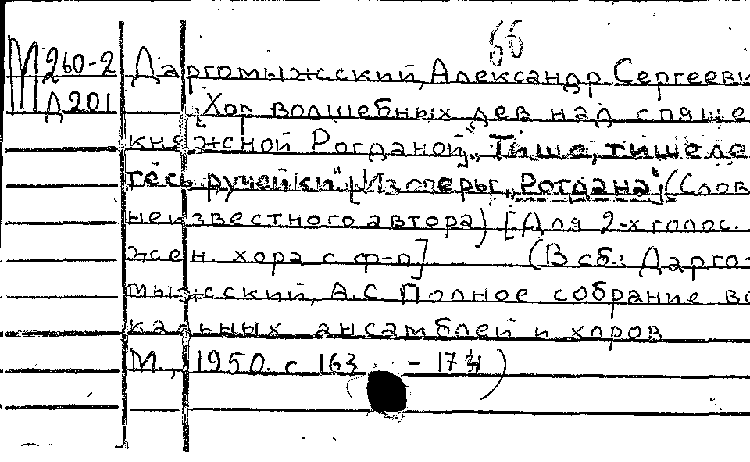 66
М260-2 Даргомыжский, Александр Сергееви
Д201 [Хор волшебных дев над спяще
княжной Рогданой] „Тише, тише ле
тесь ручейки" [Из оперы „Рогдана"] (Слов
неизвестного автора) [Для 2-х голос.
жен. хора с ф-п] (В сб.: Дарго-
мыжский, А.С. Полное собрание во
кальных ансамблей и хоров
М., 1950. с 163 - 174)